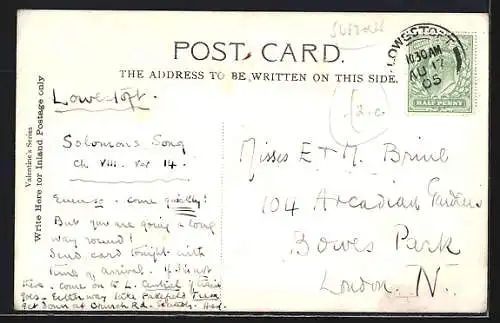 Suffolk
POST CARD.
THE ADDRESS TO BE WRITTEN ON THIS SIDE.
LOWESTOFT
10.30AM
AU 17
05
HALF PENNY
Valentine's Series
Write Here for Inland Postage only
Lowestoft.
Solomon's Song
Ch VIII. Ver 14.
come quickly!
But you are going a long
way round!
Send card tonight with
time of arrival. If it's not
come on to L. Central if train
goes. Either way take Pakefield Tram
get down at Branch Rd.
Misses E & M. Brine
104 Arcadian Gardens
Bowes Park
London. N.